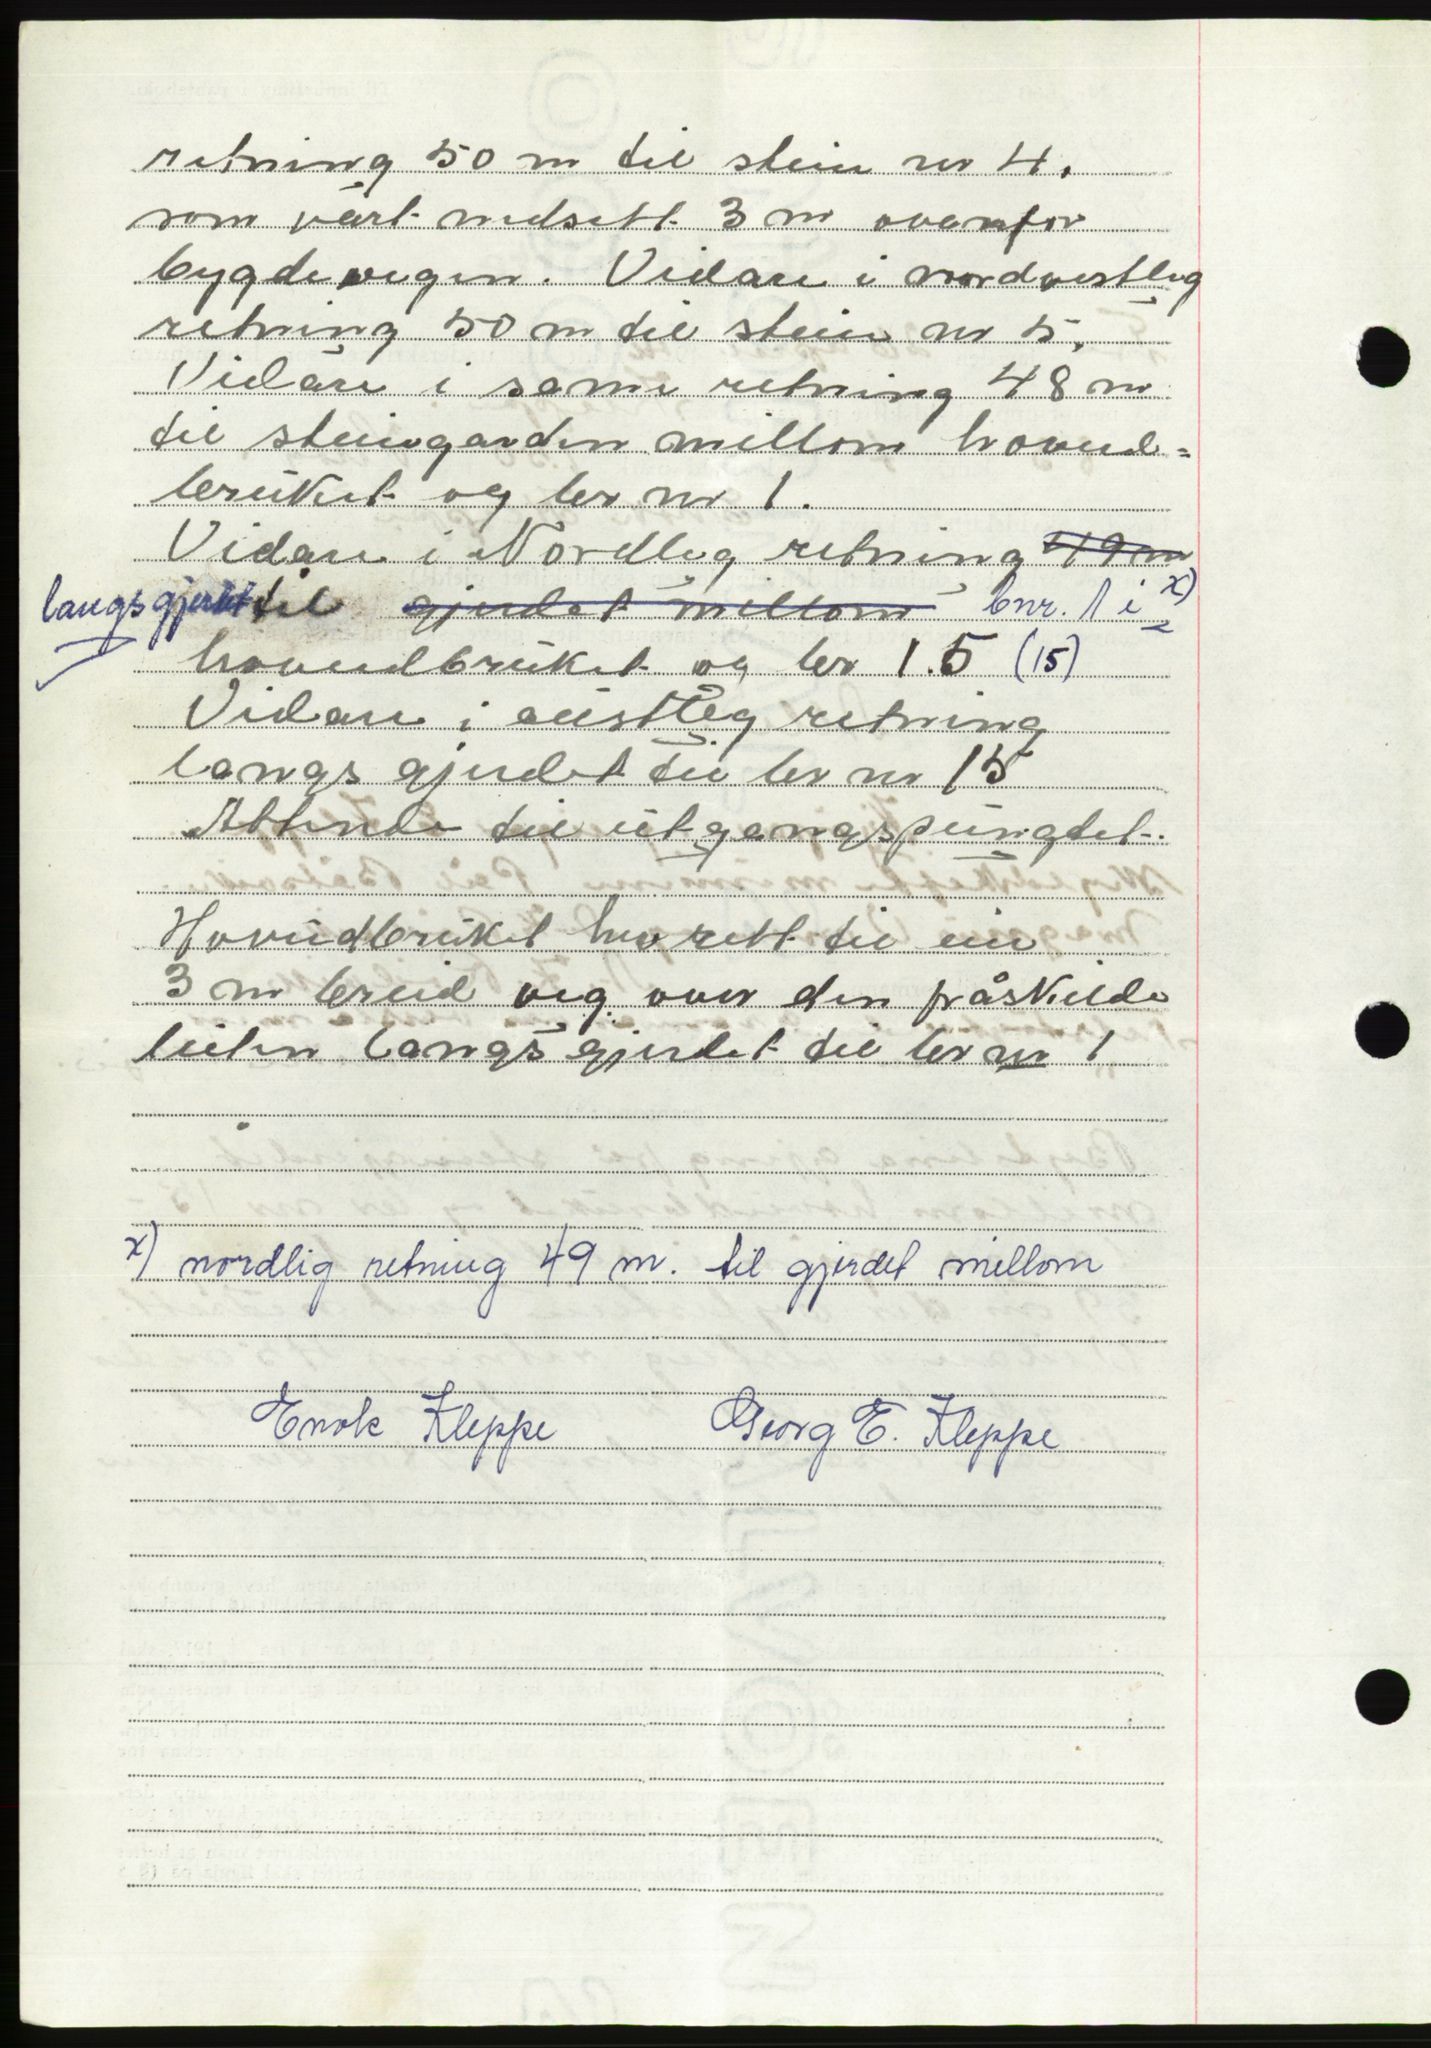 retning 50 m til stein nr 4.
som vart nedsatt 3 m ovanfor
bygdevegen. Vidare i nordvestleg
retning 50 m til stein nr 5.
Vidare i same retning 48 m
til steingarden millom hovud=
bruket og br nr 1.
Vidare i Nordleg retning 49 m
langs gjerdet til gjerdet millom bnr. 1 i x)
hovudbruket og br 1.5 (15)
Vidare i austleg retning
langs gjerdet til br nr 15
Attende til utgangspungtet.
Hovudbruket har rett til ein
3 m breid veg over den fråskilde
luten langs gjerdet til br nr 1
x) nordlig retning 49 m. til gjerdet millom
Enok Kleppe Georg E. Kleppe